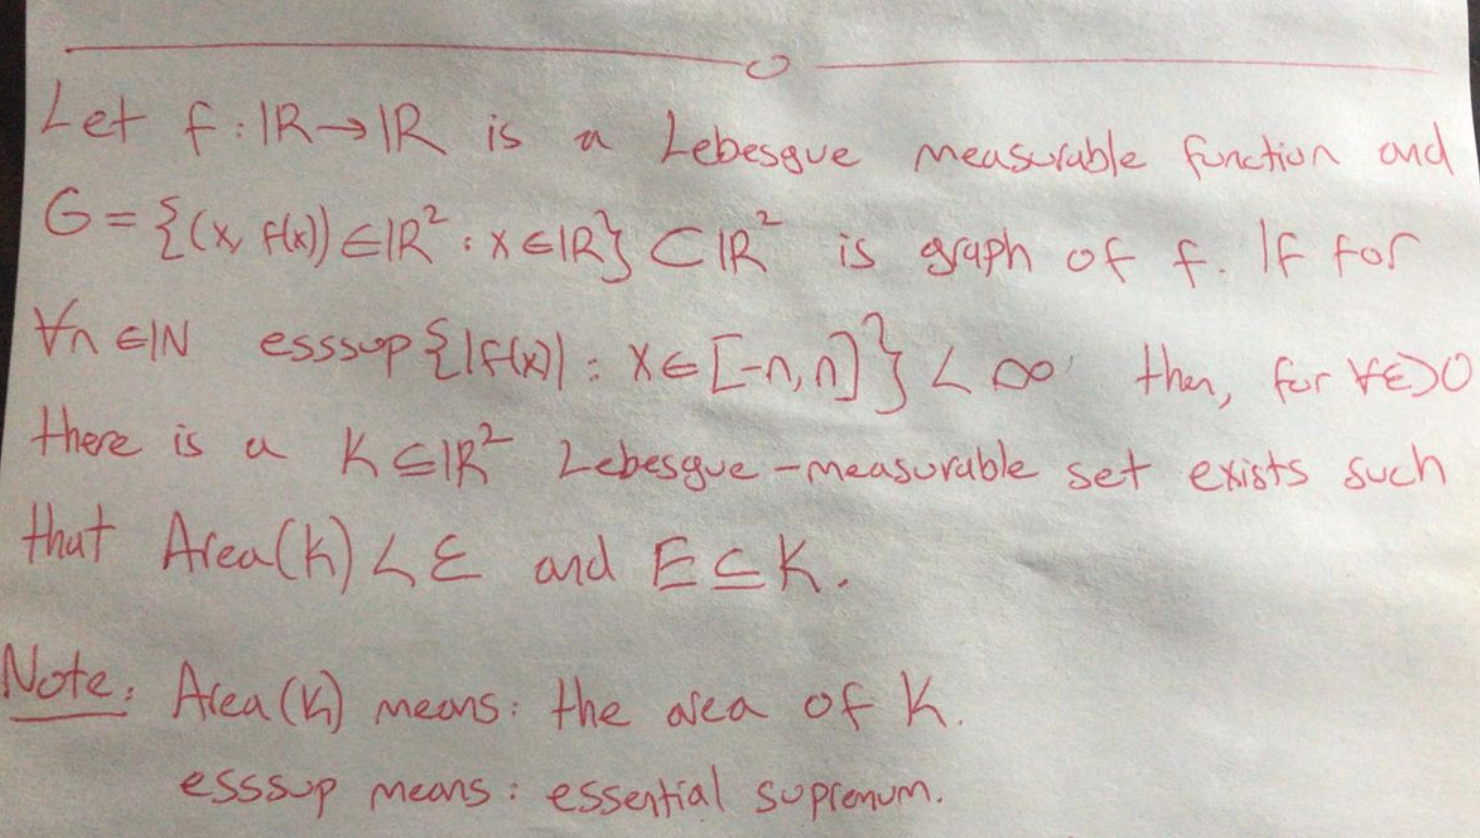 Let f : ℝ→ℝ is a Lebesgue measurable function and
G = {(x, f(x)) ∈ ℝ² : x ∈ ℝ} ⊂ ℝ² is graph of f. If for
∀n ∈ ℕ esssup {|f(x)| : x ∈ [-n, n]} < ∞ then, for ∀ε>0
there is a K ⊆ ℝ² Lebesgue-measurable set exists such
that Area(K) < ε and E ⊆ K.
Note: Area(K) means: the area of K.
esssup means: essential supremum.